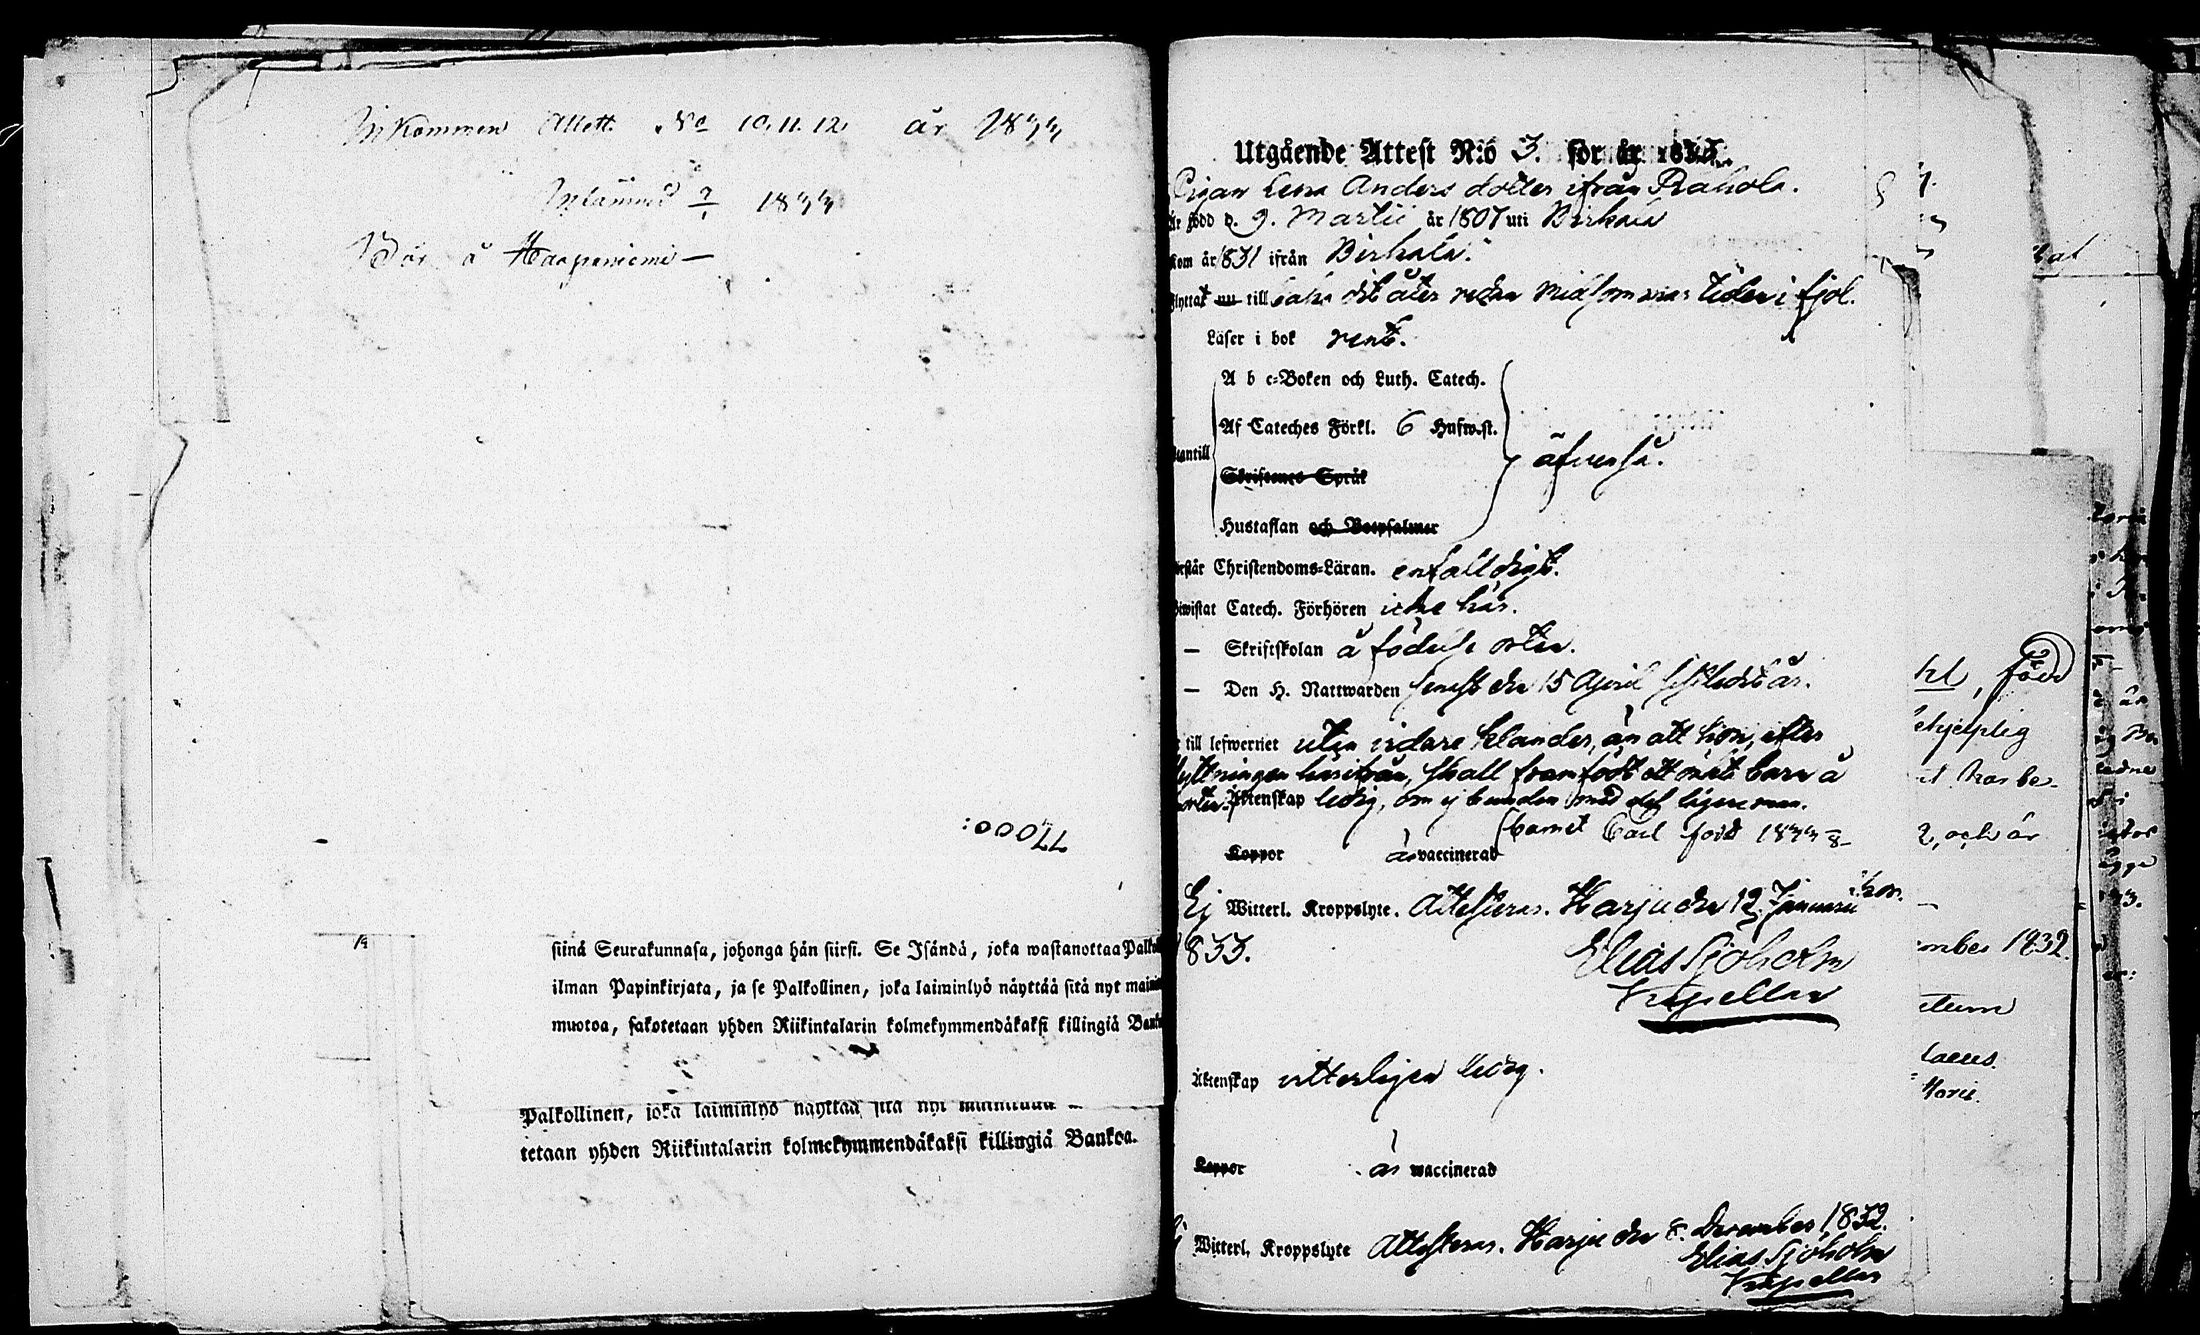 Inkommen Attest. No 10. 11. 12. år 1833
Inlämnad 1833
Bor å Haapaniemi —
77000:
siinä Seurakunnasa, johonga hån siirsi. Se Isåndå, joka wastanottaa Palk
ilman Papinkirjata, ja se Palkollinen, joka laiminlyö nåyttåå sitå nyt main
muotoa, sakotetaan yhden Riikintalarin kolmekymmendåkaksi killingiå Bank
Palkollinen, joka laiminlyö nåyttåå sitå nyt
tetaan yhden Riikintalarin kolmekymmendåkaksi killingiå Bankoa.
Utgående Attest N:o 3. för år 1833.
Pigan Lena Anders dotter ifrån Rahola.
är född d. 9. Martii år 1807 uti Birkala
kom år 1831 ifrån Birkala.
flyttat nu till samma ort åter redan Midsommars tiden i fjol.
Läser i bok rent.
A b c-Boken och Luth. Catech.
Af Cateches Förkl. 6 Hufw.st.
utantill äfvenså.
Skriftenes Språk
Hustaflan och Botpsalmer
Förstår Christendoms-Läran. enfaldigt.
Biwistat Catech. Förhören icke här.
— Skriftskolan å födelse orten.
— Den H. Nattwarden senast den 15 April sistledit år.
till lefwernet utan vidare klander, än att hon, efter
flyttningen härifrån, skall framfödt ett oäkta barn å
orten. Äktenskap ledig, om ej bunden med
barnet Carl född 1833
Koppor är vaccinerad
Ej Witterl. Kroppslyte. Attesteras. Harju den 12 Januarii
1833.
Elias Sjöholm
Kapellan
Äktenskap vitterligen ledig.
Koppor är waccinerad
Witterl. Kroppslyte Attesteras. Harju den 8. December 1832.
Elias Sjöholm
Kapellan
född
behjelplig
har be-
2, och är
ember 1832.